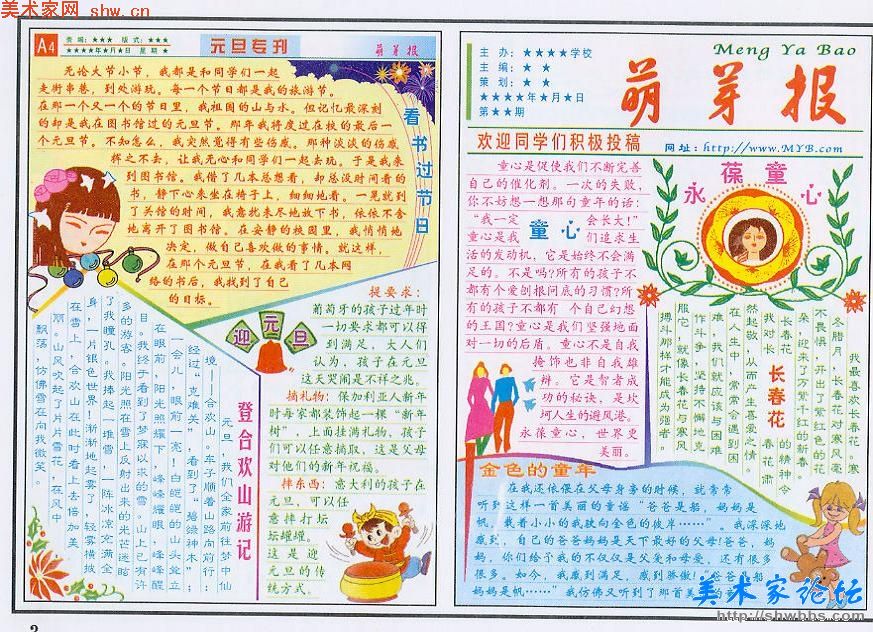 美术家网 shw.cn
A4
责编：★★★ 版式：★★★
★★★★年★月★日 星期 ★
元旦专刊
萌芽报
无论大节小节，我都是和同学们一起
走街串巷，到处游玩。每一个节日都是我的旅游节。
在那一个又一个的节日里，我祖国的山与水。但记忆最深刻
的却是我在图书馆过的元旦节。那年我将度过在校的最后一
个元旦节。不知怎么，我突然觉得有些伤感。那种淡淡的伤感
挥之不去，让我无心和同学们一起去玩。于是我来
到图书馆。我借了几本总想看，却总没时间看的
书，静下心来坐在椅子上，细细地看。一晃就到
了关馆的时间，我意犹未尽地放下书，依依不舍
地离开了图书馆。在安静的校园里，我悄悄地
决定，做自己喜欢做的事情。就这样，
在那个元旦节，在我看了几本网
络的书后，我找到了自己
的目标。
看书过节日
迎元旦
提要求：
葡萄牙的孩子过年时
一切要求都可以得
到满足，大人们
认为，孩子在元旦
这天哭闹是不祥之兆。
摘礼物：保加利亚人新年
时每家都装饰起一棵“新年
树”，上面挂满礼物，孩子
们可以任意摘取，这是父母
对他们的新年祝福。
摔东西：意大利的孩子在
元旦，可以任
意摔打坛
坛罐罐。
这是迎
元旦的传
统方式。
登合欢山游记
元旦，我们全家前往梦中仙
境——合欢山。车子顺着山路向前行；
经过“克难关”，看到了“碧绿神木”；
一会儿，眼前一亮！白皑皑的山头耸立
在眼前，阳光照耀下，峰峰耀眼，峰峰醒
目。我终于看到了梦寐以求的雪。山上已有许
多的游客。阳光照在雪上反射出来的光芒迷眩
了我瞳孔。我捧起一堆雪，一阵冰凉充满全
身，一片银色世界！渐渐地起雾了，轻雾横披
在雪上，合欢山在此时看上去倍加美
丽。山风吹起了片片雪花，在风中
飘落，仿佛雪在向我微笑。
2
主办：★★★★学校
主编：★ ★
策划：★ ★
★★★★年★月★日
第★★期
Meng Ya Bao
萌芽报
欢迎同学们积极投稿
网址：http://www.MYB.com
童心是促使我们不断完善
自己的催化剂。一次的失败，
你不妨想一想那句童年的话：
“我一定 会长大！”
童心是我 们追求生
童心
活的发动机，它是始终不会满
足的。不是吗？所有的孩子不
都有个爱刨根问底的习惯？所
有的孩子不都有 个自己幻想
的王国？童心是我们坚强地面
对一切的后盾。童心不是自我
掩饰也非自我雄
辩。它是智者成
功的秘诀，是坎
坷人生的避风港。
永葆童心，世界更
美丽。
永葆童心
我最喜欢长春花。寒
冬腊月，长春花对寒风毫
不畏惧，开出了紫红色的花
朵，迎来了万紫千红的新春。
长春花 的精神令
我对长 春花肃
长春花
然起敬，从而产生喜爱之情。
在人生中，常常会遇到困
难，我们就应该与困难
作斗争，坚持不懈地克
服它，就像长春花与寒风
搏斗那样才能成为强者。
金色的童年
在我还依偎在父母身旁的时候，就常常
听到这样一首美丽的童谣“爸爸是船，妈妈是
帆，载着小小的我驶向金色的彼岸……”。我深深地
感到，自己的爸爸妈妈是天下最好的父母！爸爸，妈
妈，你们给予我的不仅仅是父爱和母爱，还有很多
很多。如今，我感到满足，感到骄傲！“爸爸是船
妈妈是帆……”我仿佛又听到了那首美
美术家论坛
http://shwbbs.com